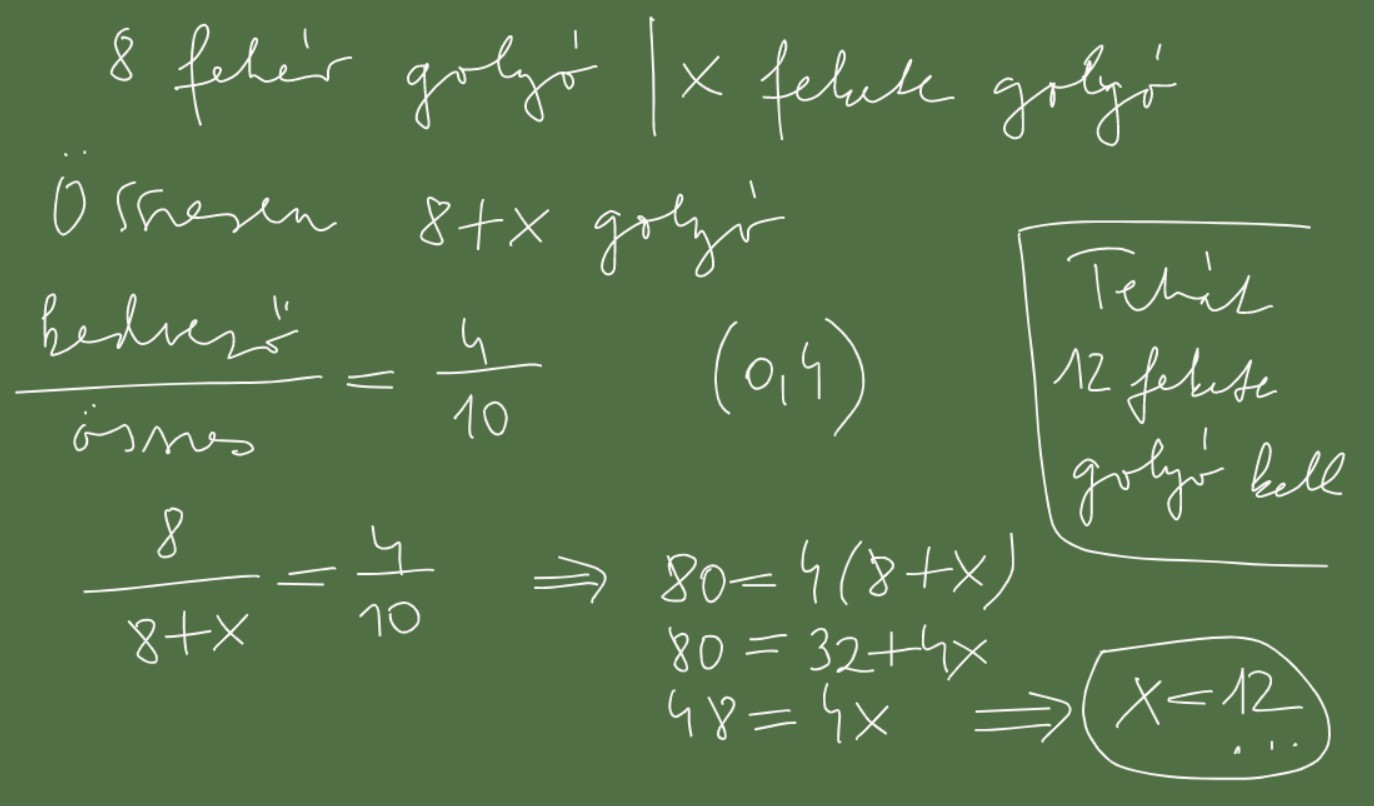 8 fehér golyó | x fekete golyó
Összesen 8+x golyó
kedvező / összes = 4/10 (0,4)
8/(8+x) = 4/10 ⇒ 80=4(8+x)
80=32+4x
48=4x ⇒ x=12
Tehát
12 fekete
golyó kell